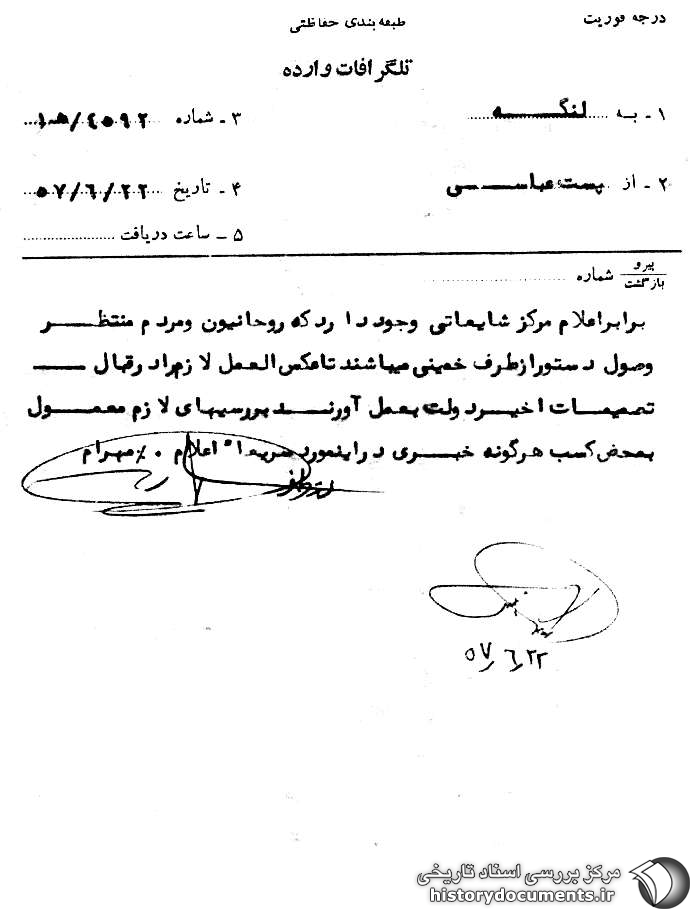 درجه فوریت
طبقه‌بندی حفاظتی
تلگرافات وارده
۱ - به لنگه
۳ - شماره ۴۵۹۲/ﻫ۱
۲ - از پست عباسی
۴ - تاریخ ۵۷/۶/۲۲
۵ - ساعت دریافت
پیرو
بازگشت
شماره
برابر اعلام مرکز شایعاتی وجود دارد که روحانیون و مردم منتظر
وصول دستور از طرف خمینی میباشند تا عکس العمل لازم را در قبال
تصمیمات اخیر دولت بعمل آورند بررسیهای لازم معمول
بمحض کسب هرگونه خبری در اینمورد سریعا" اعلام ۰٪ مهرام
۵۷/۶/۲۲
مرکز بررسی اسناد تاریخی
historydocuments.ir